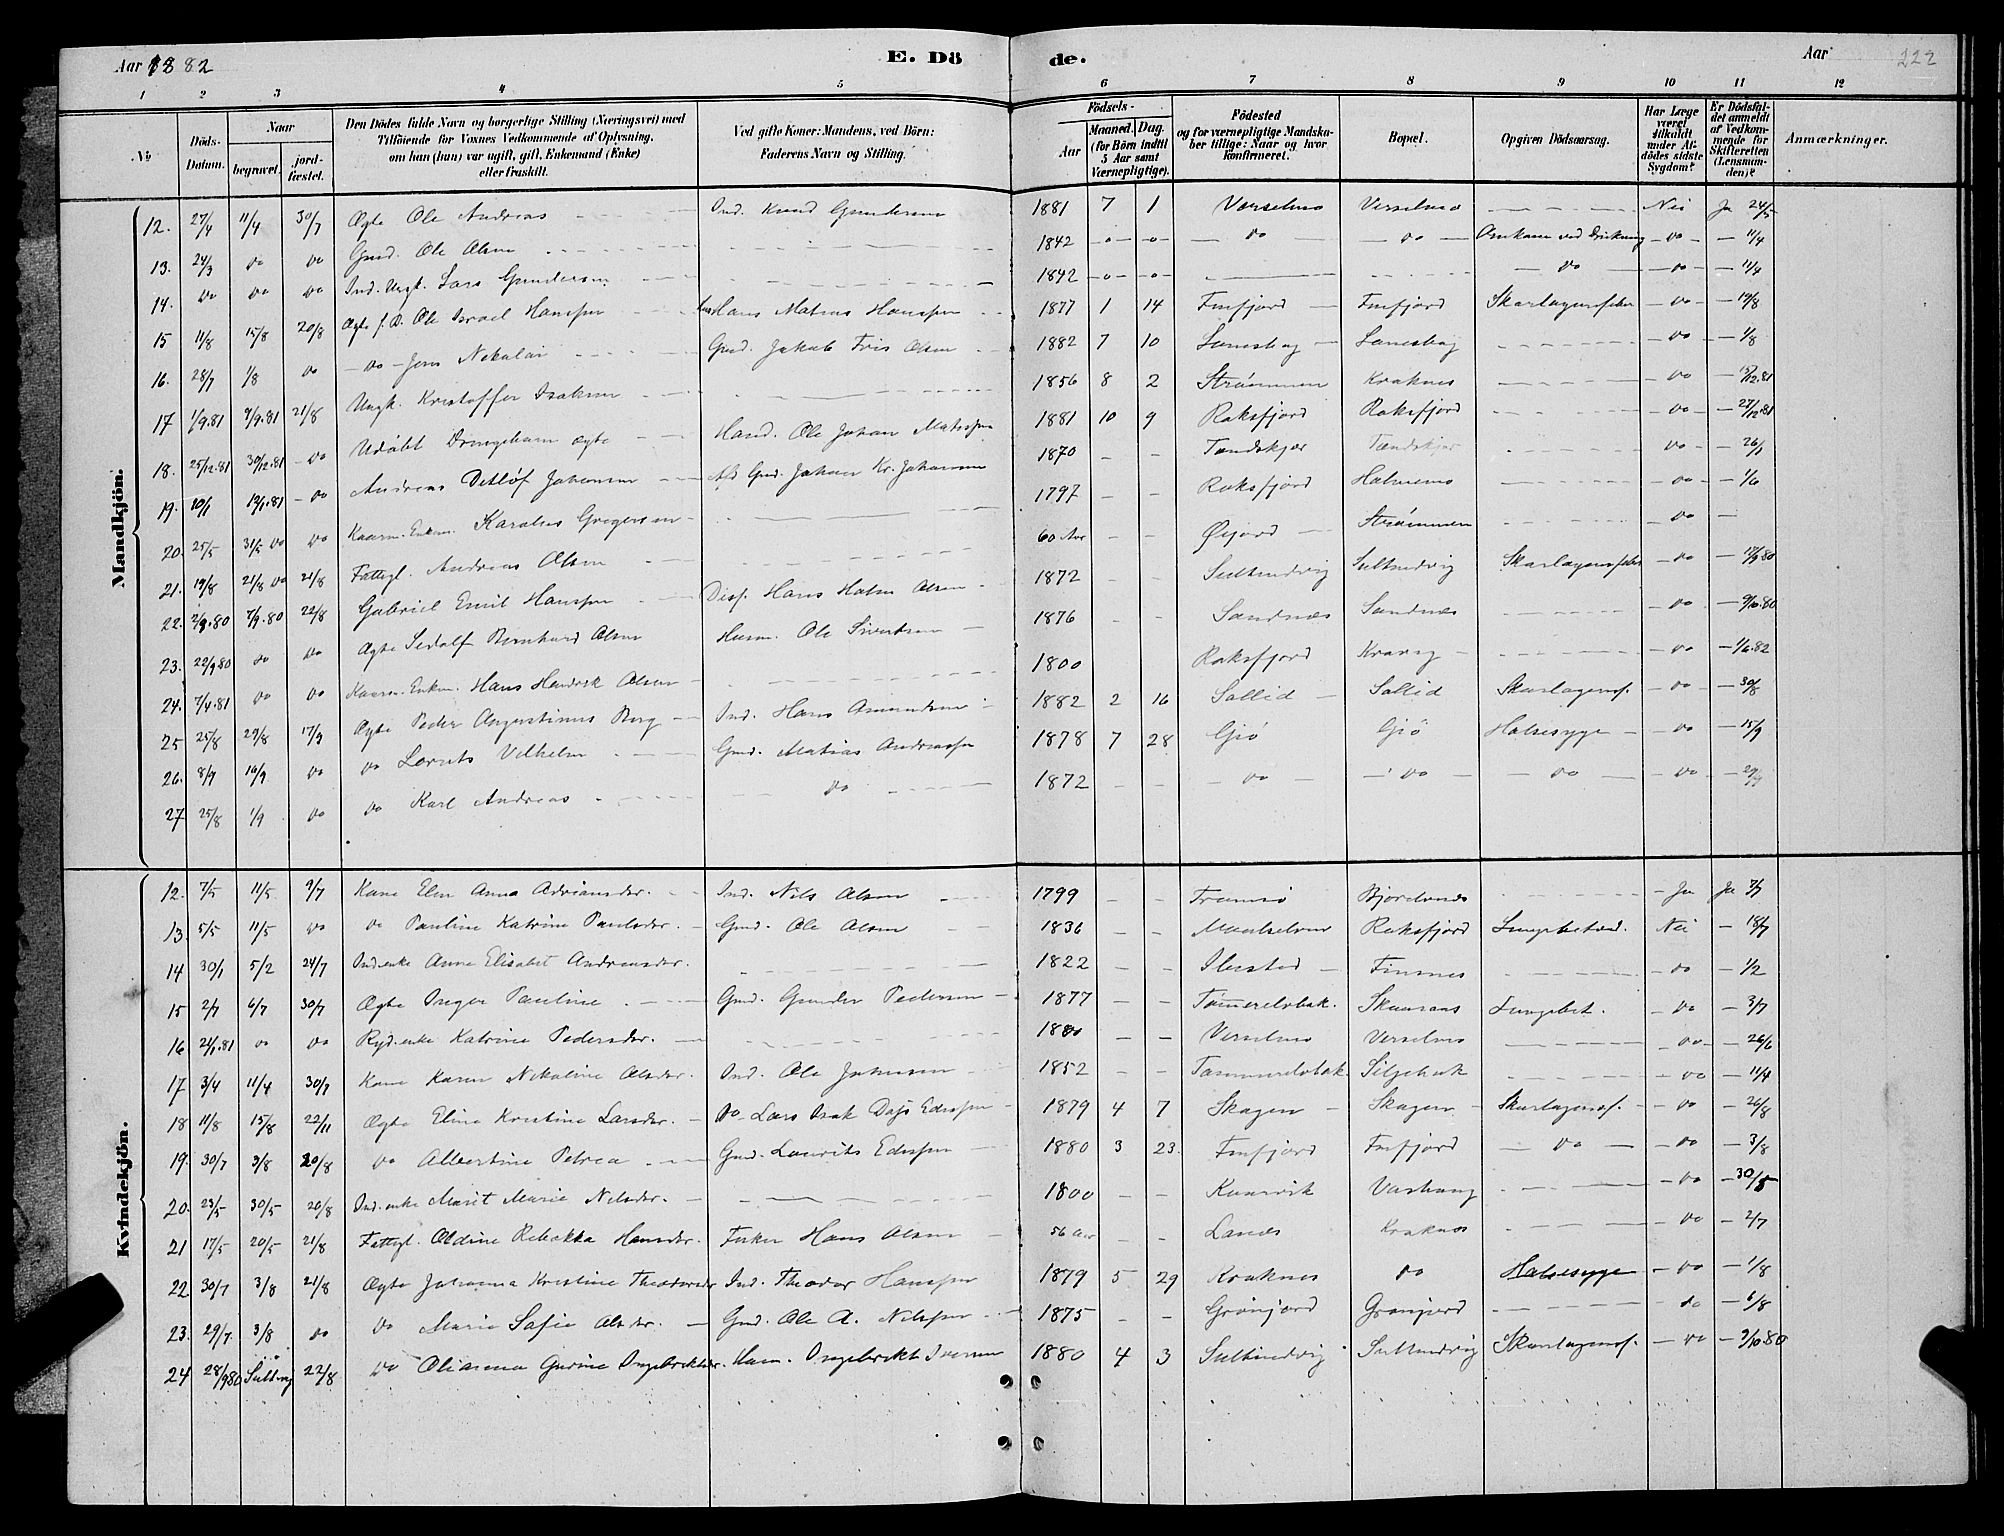 Aar 1882
E. Dö
de.
Aar
222
1 2 3 4 5 6 7 8 9 10 11 12
No
Döds-Datum.
Naar
begravet.
jord-fæstet.
Den Dödes fulde Navn og borgerlige Stilling (Næringsvei) med
Tilföiende for Voxnes Vedkommende af Oplysning,
om han (hun) var ugift, gift, Enkemand (Enke)
eller fraskilt.
Ved gifte Koner: Mandens, ved Börn:
Faderens Navn og Stilling.
Födsels-
Aar
Maaned. Dag.
(for Börn indtil
5 Aar samt
Værnepligtige).
Födested
og for værnepligtige Mandska-
ber tillige: Naar og hvor
konfirmeret.
Bopæl.
Opgiven Dödsaarsag.
Har Læge
været
tilkaldt
under Af-
dödes sidste
Sygdom?
Er Dödsfal-
det anmeldt
af Vedkom-
mende for
Skifteretten
(Lensman-
den)?
Anmærkninger.
Mandkjön.
12. 27/4 11/4 30/7 Ægte Ole Andreas Ind. Knud Gundersen 1881 7 1 Værselmo Verselmo Nei Ja 24/5
13. 24/3 do do Gmd. Ole Olsen 1842 -o- -o- do do Omkom ved Drukning do 11/4
14. do do do Ind. Ungk. Lars Gundersen 1842 -o- -o- do do 11/4
15 11/8 15/8 20/8 Ægte f. D. Ole Israel Hanssen Hans Matias Hanssen 1877 1 14 Finfjord Finfjord Skarlagensfeber do 19/8
16. 28/7 1/8 do do Jens Nekolai Gmd. Jakob Friis Olsen 1882 7 10 Lanesbog Lanesbog do 1/8
17 1/9.81 9/9.81 21/8 Ungk. Kristoffer Isaksen 1856 8 2 Strømmen Kraknes do 15/12.81
18. 25/12.81 30/12.81 do Udöbt Drengebarn ægte Haand. Ole Johan Matissen 1881 10 9 Roksfjord Roksfjord do 27/12.81
19. 10/1 13/1.81 do Andreas Detlöf Johansen Gmd. Johan Kr. Johansen 1870 Tandskjær Tandskjær do 26/1
20 25/5 31/5 do do Kaarm. Enkm. Karolus Gregersen 1797 Roksfjord Holmemo do 1/6
21. 19/8 21/8 do 21/8 Fattigl. Andreas Olsen 60 Aar Øijord Strømmen do
22. 2/9.80 7/9.80 22/8 Gabriel Emil Hanssen Disp. Hans Holm Olsen 1872 Sultindvig Sultindvig Skarlagensfeber do 17/9.80
23. 22/9.80 do do Ægte Sedolf Bernhard Olsen Husm. Ole Sivertsen 1876 Sandnes Sandnes do 9/10.80
24. 7/4.81 do do Kaarm. Enkm. Hans Hendrik Olsen 1800 Roksfjord do 1/6.82
25 25/8 29/8 17/9 Ægte Peder Augustinus Berg Ind. Hans Amundsen 1882 2 16 Sollid Sollid Skarlagensf. do 30/8
26. 8/9 16/9 do do Lorents Vilhelm Gmd. Matias Andreassen 1878 7 28 Gjø Gjö Halsesyge do 15/9
27 25/8 1/9 do do Karl Andreas do 1872 do do do do
Kvindekjön.
12. 7/5 11/5 9/7 Kone Elen Anna Adriansdr. Ind. Nils Olsen 1799 Tromsø Bjorelvnes Ja Ja 7/7
13. 5/5 11/5 do do Pauline Katrine Paulsdr. Gmd. Ole Olsen 1836 Maalselven Roksfjord Lungebetænd. Nei 18/7
14 30/1 5/2 24/7 Ind.enke Anne Elisabet Andreasdr. 1822 Ibestad Finsnes do 1/2
15 2/7 6/7 30/7 Ægte Inger Pauline Gmd. Gunder Pedersen 1877 Tømmerelvbak. Skaaraas Lungebet. do 3/7
16 21/1.81 do do Ryd.enke Katrine Pedersdr. 1880 Verselmo Verselmo do 26/6
17 3/4 11/4 30/7 Kone Karen Nikoline Olsdr. Ind. Ole Johnsen 1852 Tømmerelvbak. Siljebak do 11/4
18 11/8 15/8 22/11 Ægte Eline Kristine Larsdr. do Lars Isak Dajs Edissen 1879 4 7 Skogen Skogen Skarlagensf. do 26/8
19. 30/7 3/8 20/8 do Albertine Petrea Gmd. Laurits Edissen 1880 3 23 Finfjord Finfjord do do 3/8
20. 23/5 30/5 20/8 Ind.enke Marit Marie Nilsdr. 1800 Kaarvik Vashaug do 30/5
21 17/5 20/5 21/8 Fattigl. Oldine Rebekka Hansdr. Fisker Hans Olsen 56 Aar Lanes Kraknes do 2/7
22 30/7 3/8 21/8 Ægte Johanna Kristine Theodorsdr Ind. Theodor Hanssen 1879 5 29 Kraknes do Halsesyge do 1/8
23. 29/7 3/8 do do Marie Sofie Olsdr. Gmd. Ole A. Nilssen 1875 Grønjord Grønjord do 6/8
24 28/9 80 Sultinvg 22/8 do Olianna Gurine Ingebriktsdr. Husm. Ingebrikt Iversen 1880 4 3 Sultindvig Sultindvig Skarlagensf. do 3/10.80